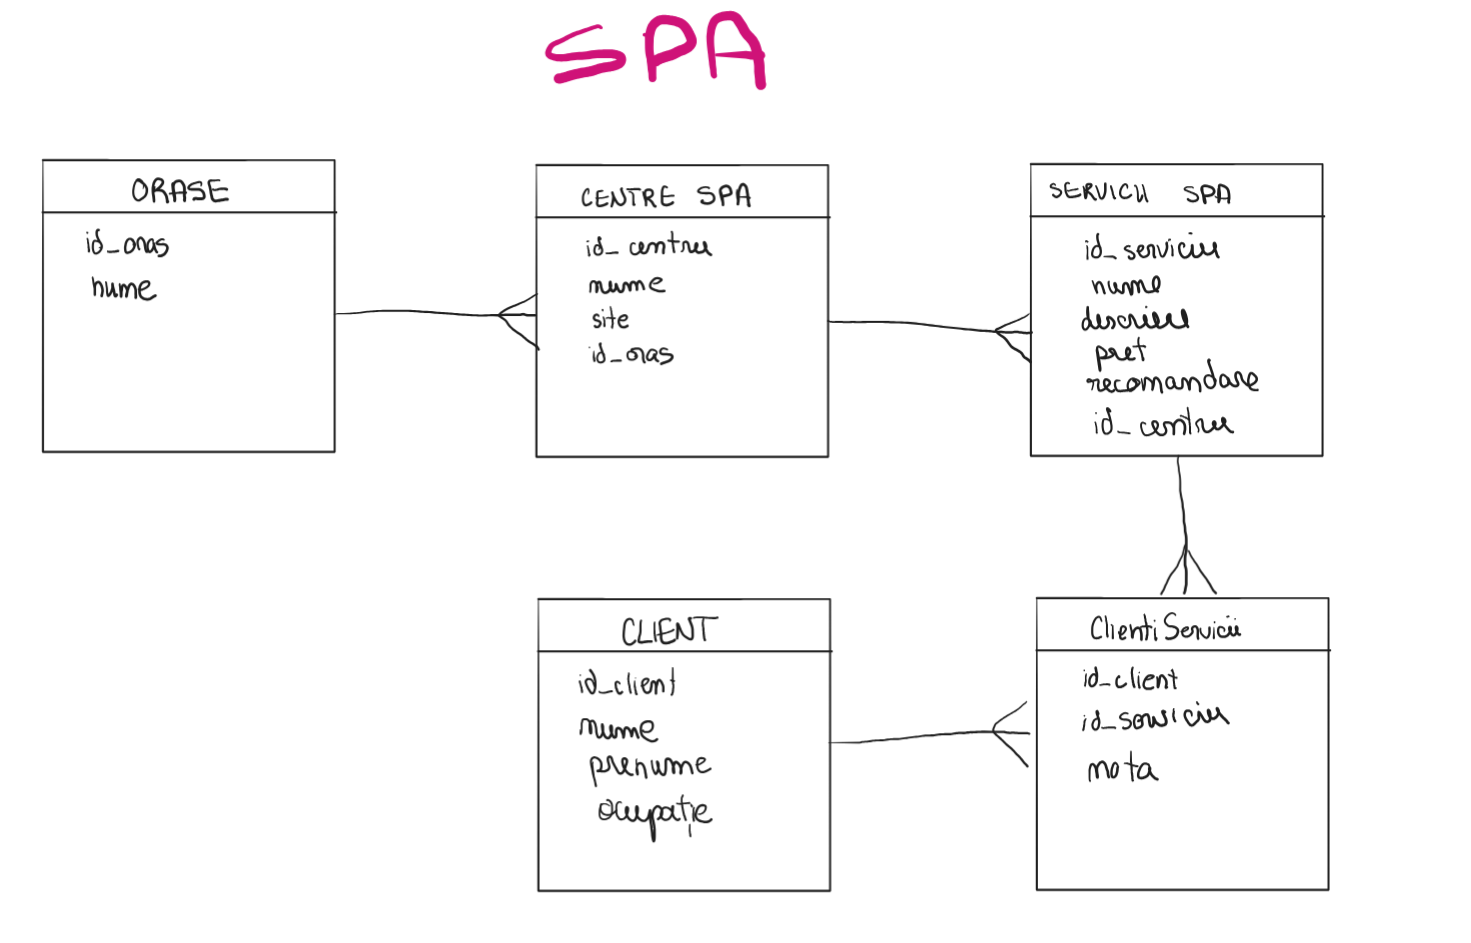 SPA
ORASE
id_oras
nume
CENTRE SPA
id_centru
nume
site
id_oras
SERVICII SPA
id_serviciu
nume
descriere
pret
recomandare
id_centru
CLIENT
id_client
nume
prenume
ocupație
ClientiServicii
id_client
id_serviciu
nota